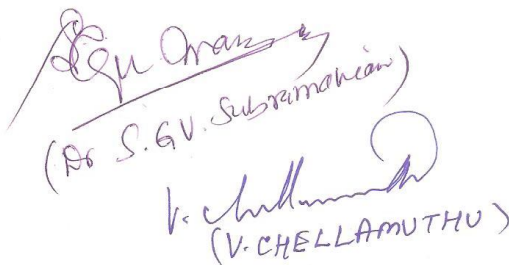 (Dr S.GV. Subramanian)
V. Chellamuthu
(V. CHELLAMUTHU)